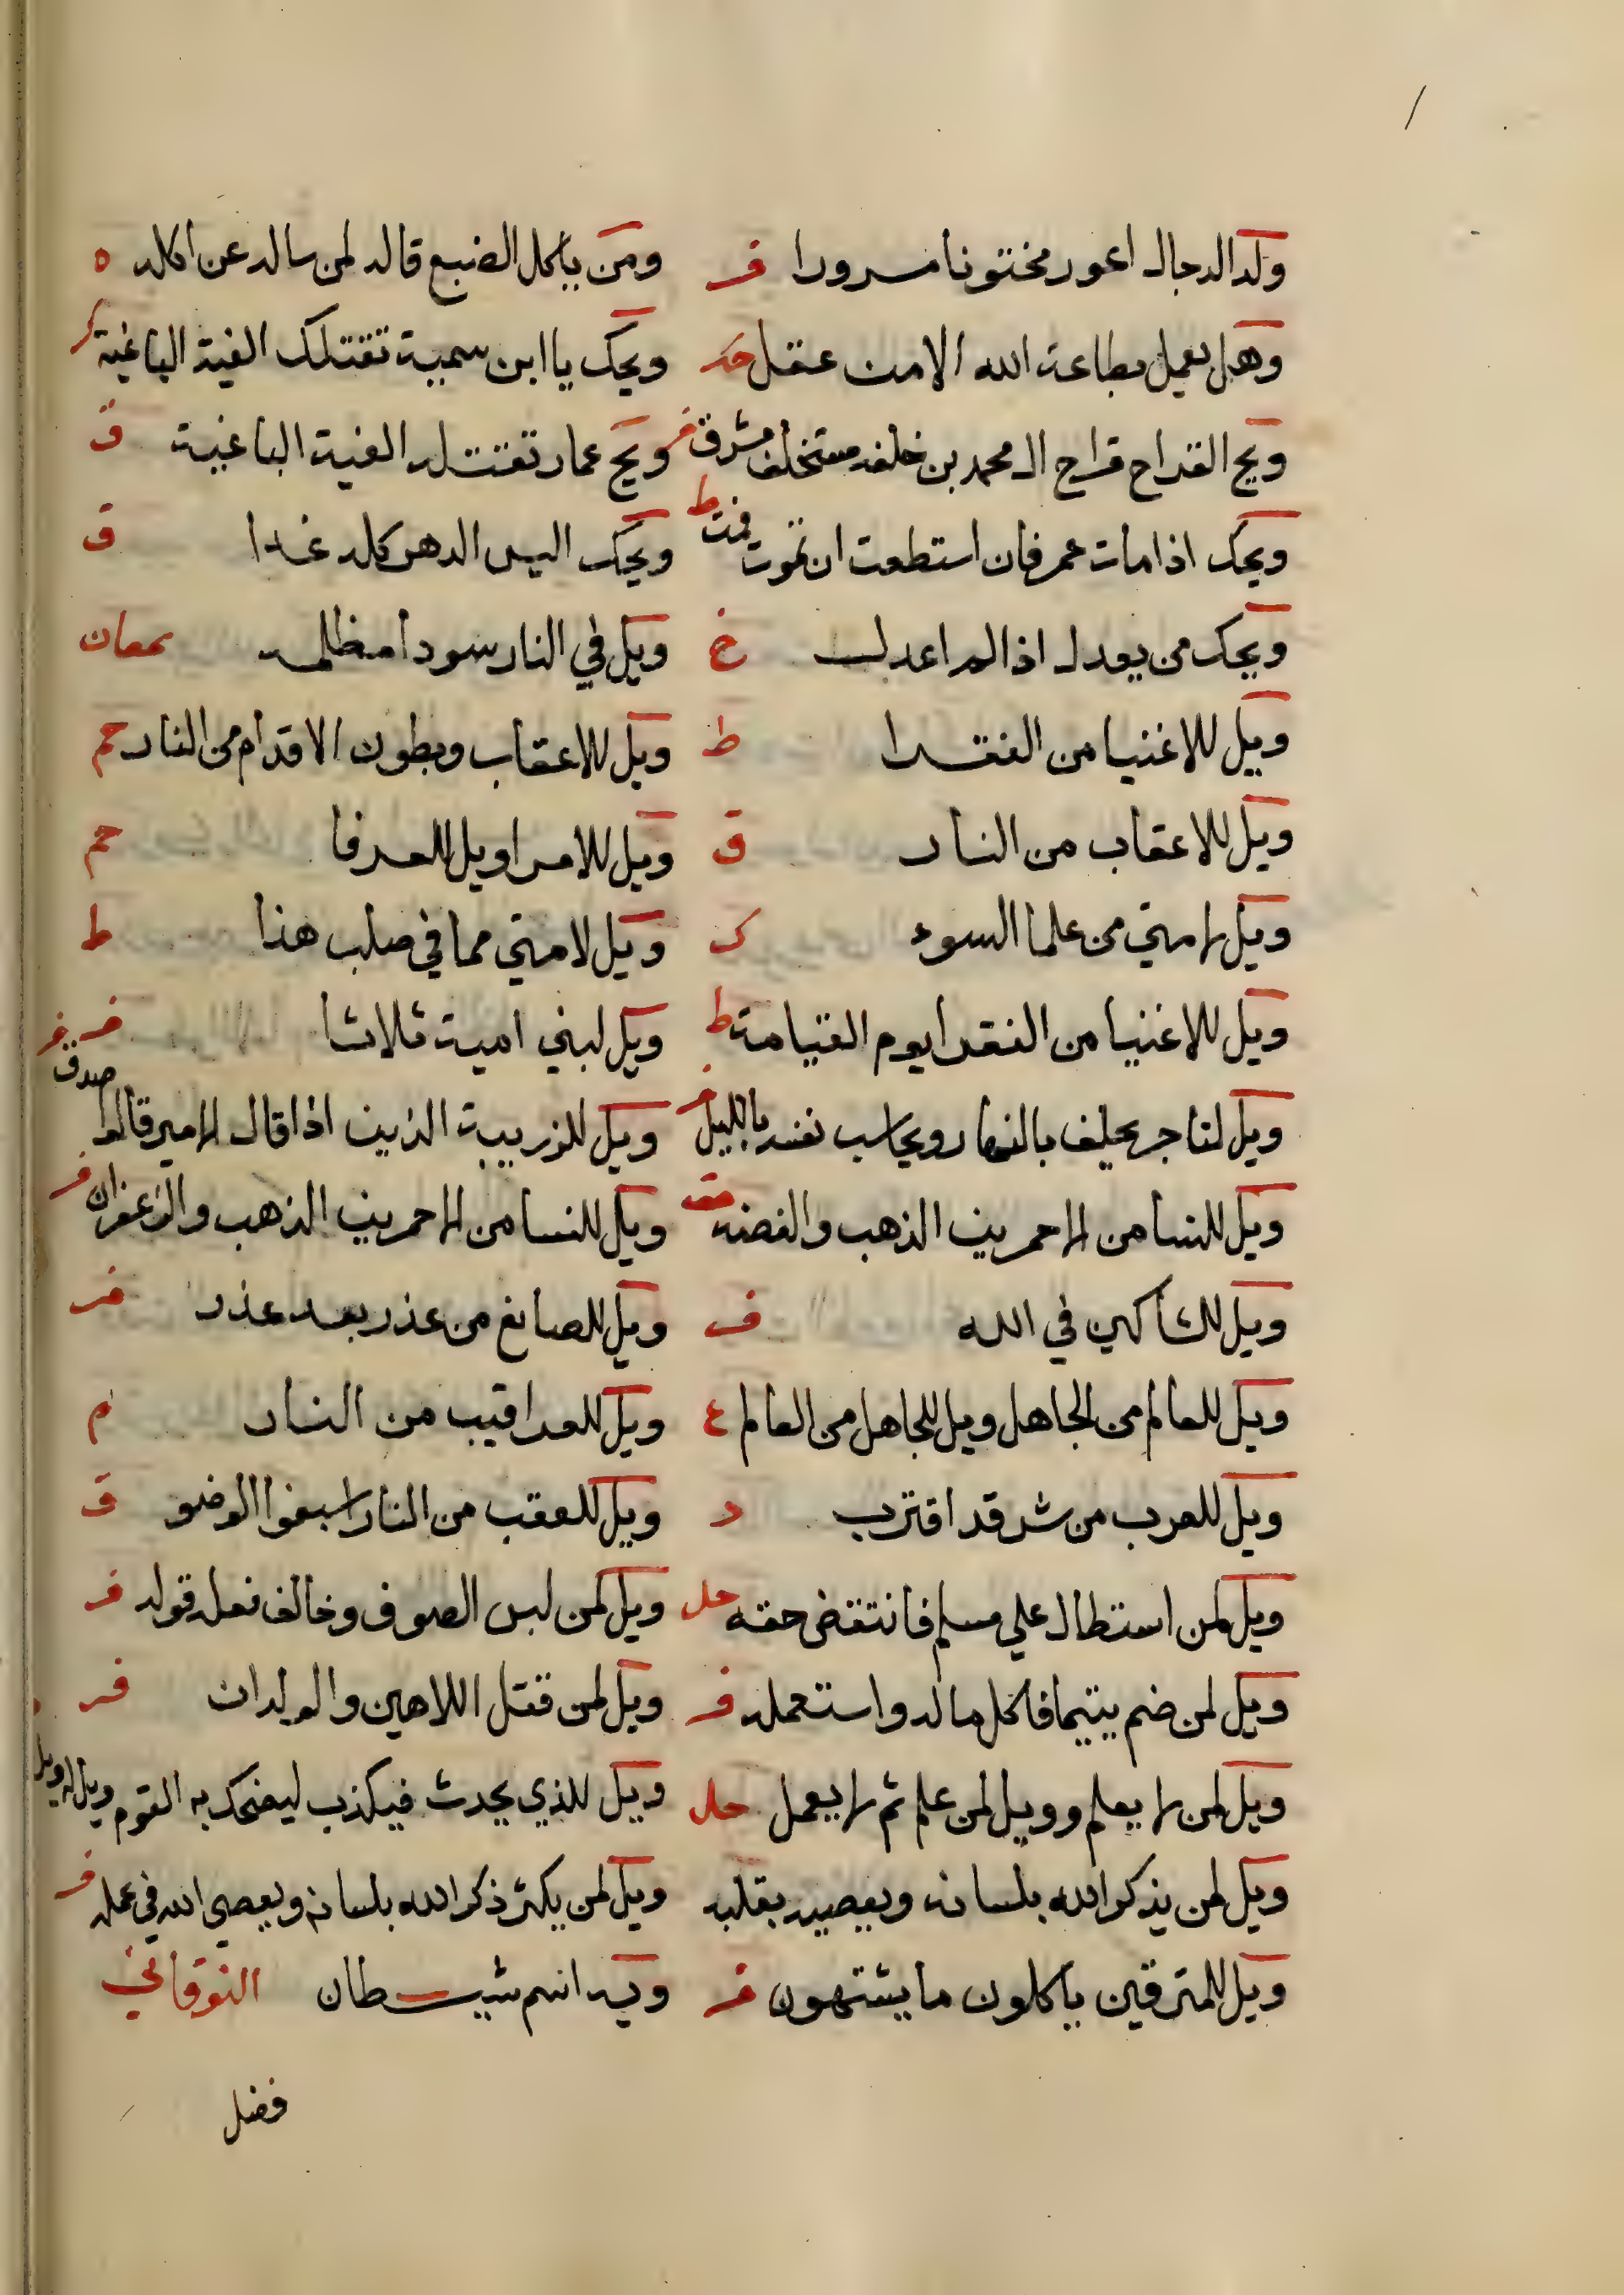 ولد الدجال اعور مختونا مسرورا فر ومن ياكل الضبع قاله لمن ساله عن اكله ه
وهل يعمل بطاعة الله الا من عقل ويحك يا ابن سمية تقتلك الفية الباغية كر
ويح الفراح فراح ال محمد بن خلفه مستخلف مترف ويح عمار تقتله الفية الباغية ق
ويحك اذا مات عمر فان استطعت ان تموت فمت ط ويحك اليس الدهر كله غدا ق
ويحك من يعدل اذا لم اعدل خ ويل في النار سودا مظلمه سمعان
ويل للاغنيا من الفقرا ط ويل للاعقاب وبطون الاقدام من النار حم
ويل للاعقاب من النار ق ويل للامرا ويل للعرفا حم
ويل لامتي من علما السوء ك ويل لامتي مما في صلب هذا ط
ويل للاغنيا من الفقرا يوم القيامة ط ويل لبني امية ثلاثا
ويل لتاجر يحلف بالنهار ويحاسب نفسه بالليل فر ويل للزريبة الذين اذا قال الامير قالوا صدق
ويل للنسا من الاحمرين الذهب والفضه ويل للنسا من الاحمرين الذهب والزعفران فر
ويل للشاكين في الله ف ويل للصانع من غد وبعد غد فر
ويل للعالم من الجاهل ويل للجاهل من العالم ع ويل للعراقيب من النار م
ويل للعرب من شر قد اقترب د ويل للعقب من النار اسبغوا الوضو ق
ويل لمن استطال علي مسلم فانتقض حقه حل ويل لمن لبس الصوف وخالف فعله قوله فر
ويل لمن ضم يتيما فاكل ماله واستعمله فر ويل لمن قتل اللاهين والولدان فر
ويل لمن لا يعلم وويل لمن علم ثم لا يعمل حل ويل للذي يحدث فيكذب ليضحك به القوم ويل له ويل
ويل لمن يذكر الله بلسانه ويعصيه بقلبه ويل لمن يكثر ذكر الله بلسانه ويعصي الله في عمله فر
ويل للمترفين ياكلون ما يشتهون فر ويه اسم شيطان النوقاني
فضل